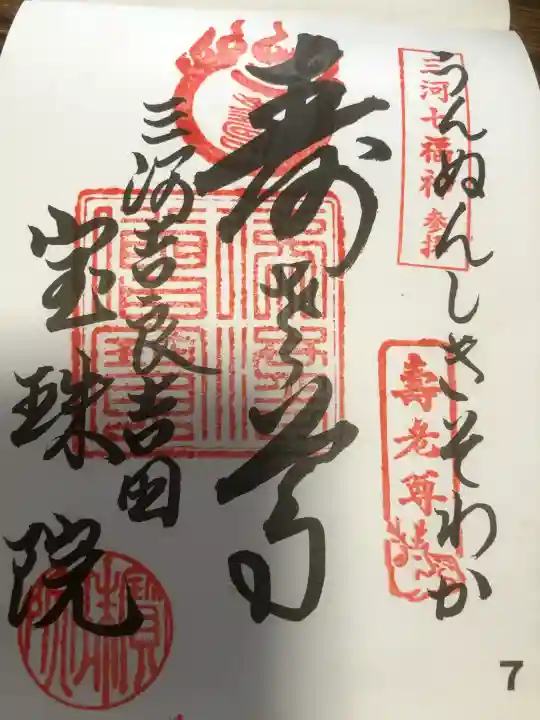 うんぬんしきそわか
三河七福神 参拝
壽老尊
寿老尊
三河吉良吉田
宝珠院
寶珠院
7